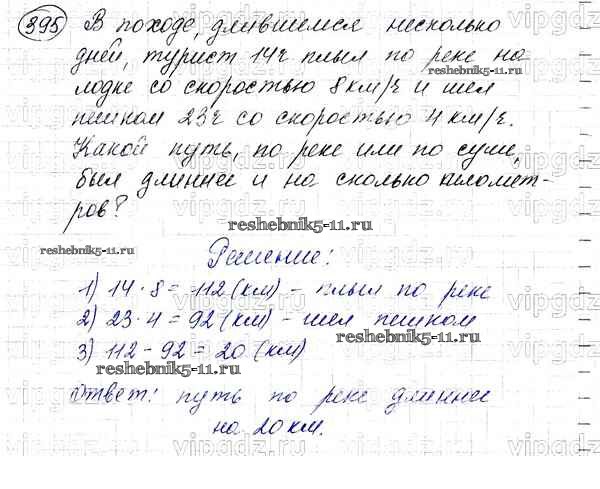 395 В походе, длившемся несколько
дней, турист 14 ч плыл по реке на
лодке со скоростью 8 км/ч и шел
пешком 23 ч со скоростью 4 км/ч.
Какой путь, по реке или по суше,
был длиннее и на сколько километ-
ров?
Решение:
1) 14 · 8 = 112 (км) - плыл по реке
2) 23 · 4 = 92 (км) - шел пешком
3) 112 - 92 = 20 (км)
Ответ: путь по реке длиннее
на 20 км.
reshebnik5-11.ru
reshebnik5-11.ru
reshebnik5-11.ru
reshebnik5-11.ru
reshebnik5-11.ru
vipgdz.ru